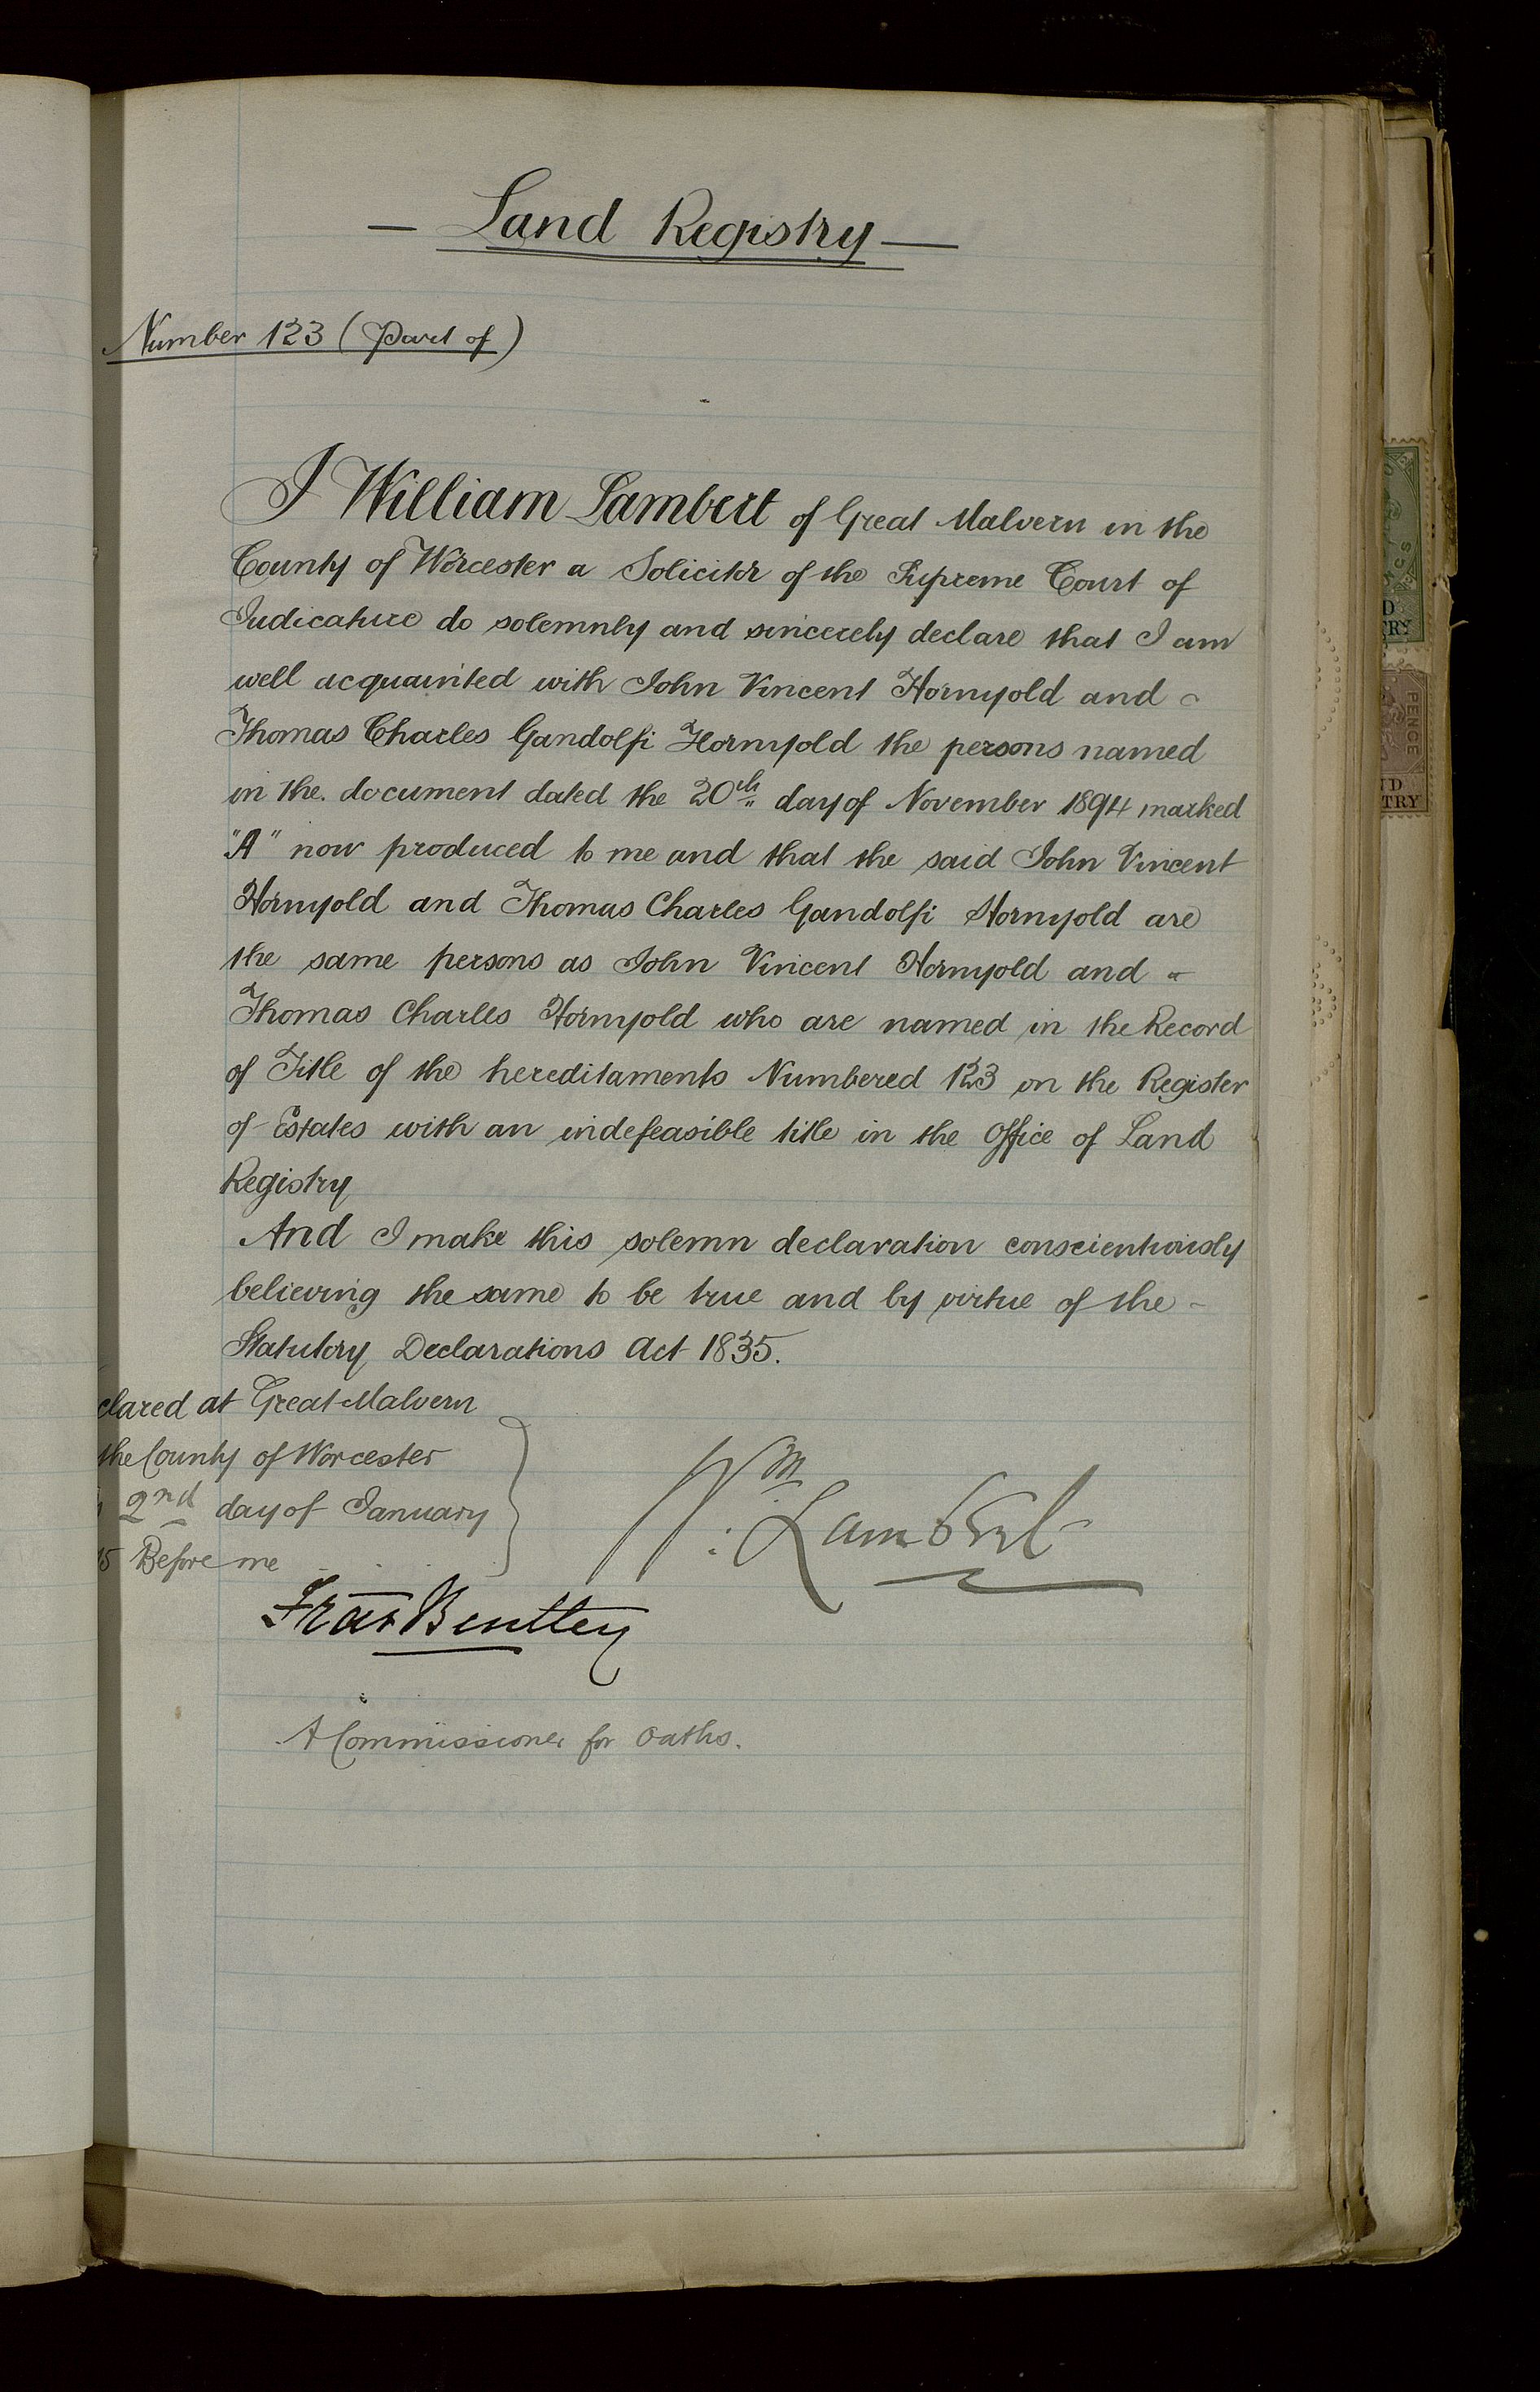 — Land Registry —
Number 123 (Part of)
I William Lambert of Great Malvern in the
County of Worcester a Solicitor of the Supreme Court of
Judicature do solemnly and sincerely declare that I am
well acquainted with John Vincent Hornyold and
Thomas Charles Gandolfi Hornyold the persons named
in the document dated the 20th day of November 1894 marked
"A" now produced to me and that the said John Vincent
Hornyold and Thomas Charles Gandolfi Hornyold are
the same persons as John Vincent Hornyold and
Thomas Charles Hornyold who are named in the Record
of Title of the hereditaments Numbered 123 on the Register
of Estates with an indefeasible title in the Office of Land
Registry
And I make this solemn declaration conscientiously
believing the same to be true and by virtue of the
Statutory Declarations Act 1835.
clared at Great Malvern
the County of Worcester
2nd day of January
5 Before me
Wm. Lambert
Fras Bentley
A Commissioner for Oaths.
PENCE